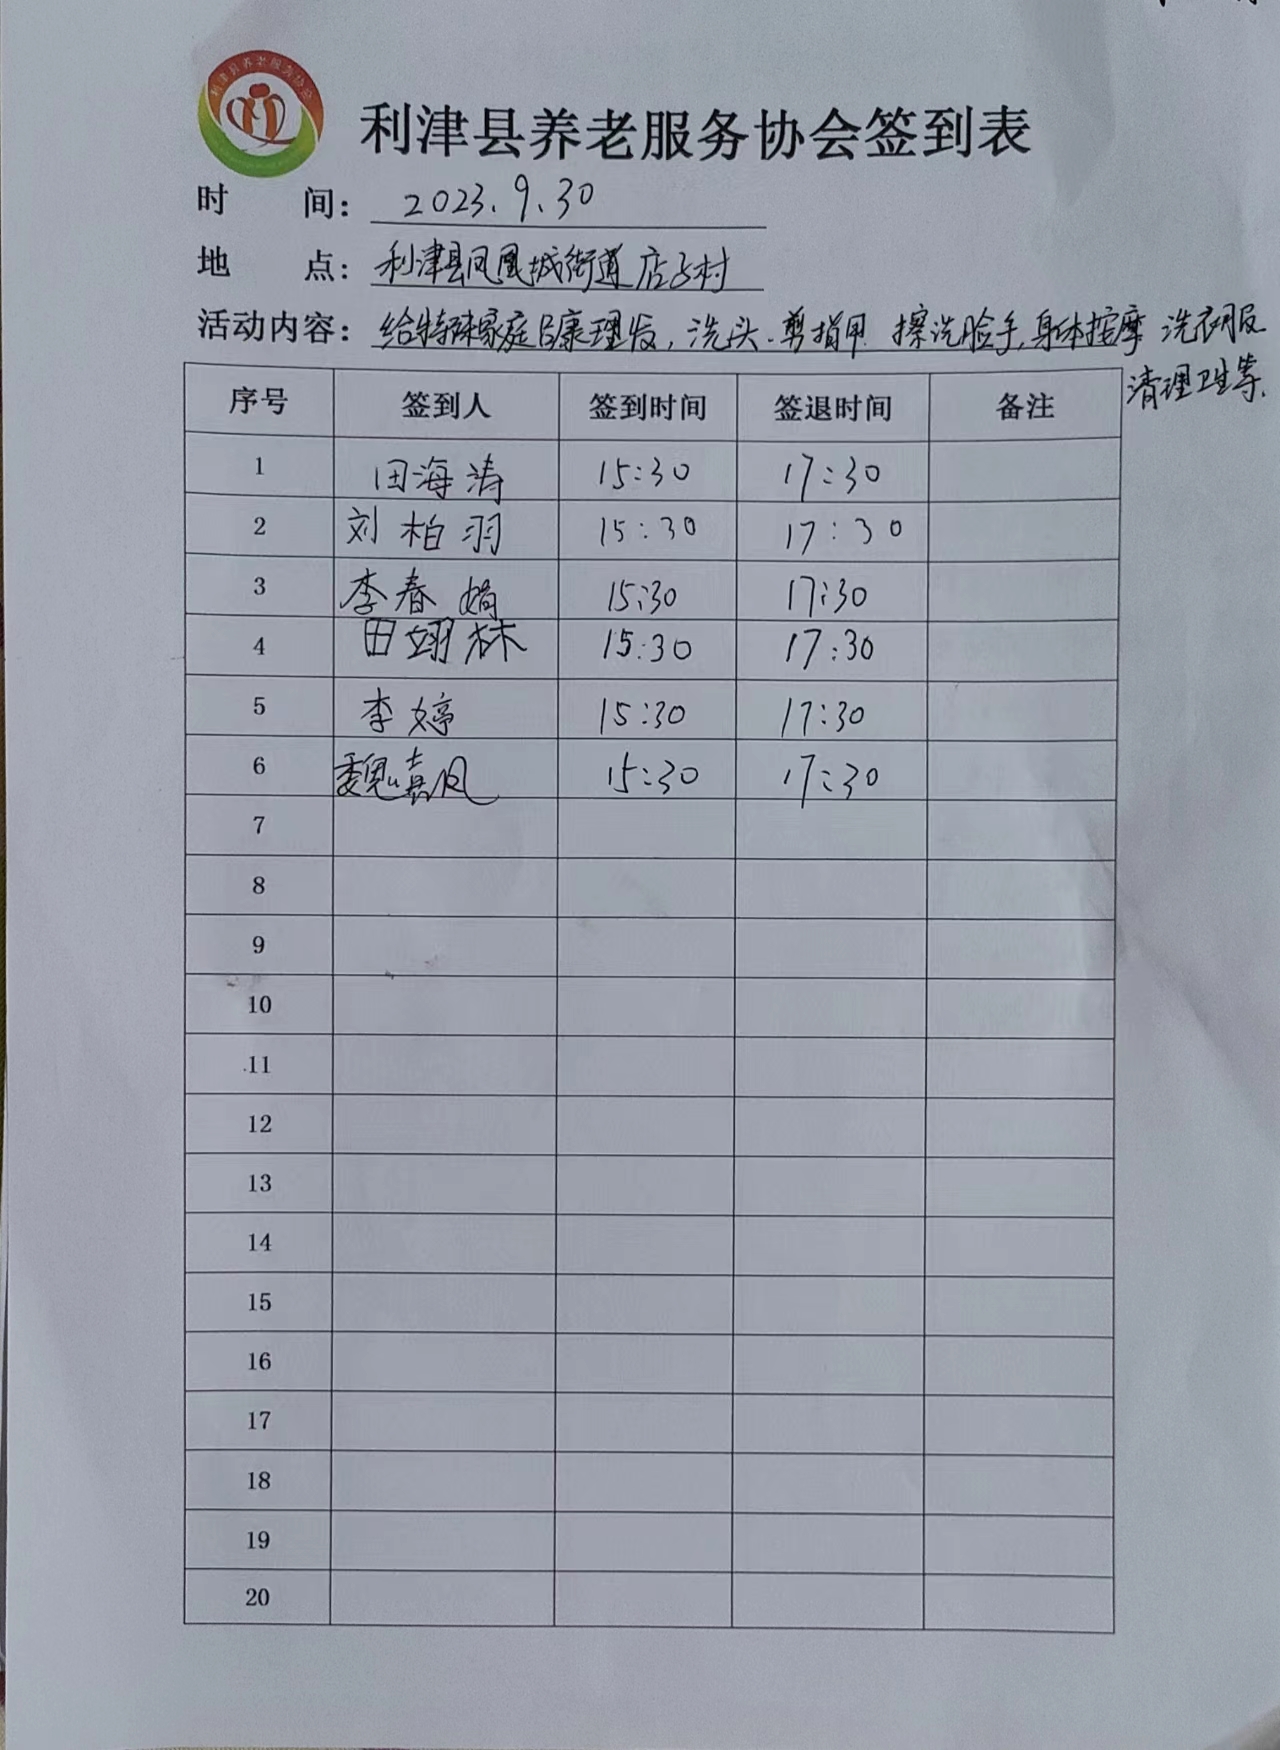 利津县养老服务协会
利津县养老服务协会签到表
时 间： 2023.9.30
地 点： 利津县凤凰城街道店子村
活动内容： 给特殊家庭吕康理发，洗头、剪指甲 擦洗脸手，身体按摩 洗衣服
清理卫生等.
序号 签到人 签到时间 签退时间 备注
1 田海涛 15:30 17:30
2 刘柏羽 15:30 17:30
3 李春娟 15:30 17:30
4 田翊林 15:30 17:30
5 李婷 15:30 17:30
6 魏嘉风 15:30 17:30
7
8
9
10
11
12
13
14
15
16
17
18
19
20